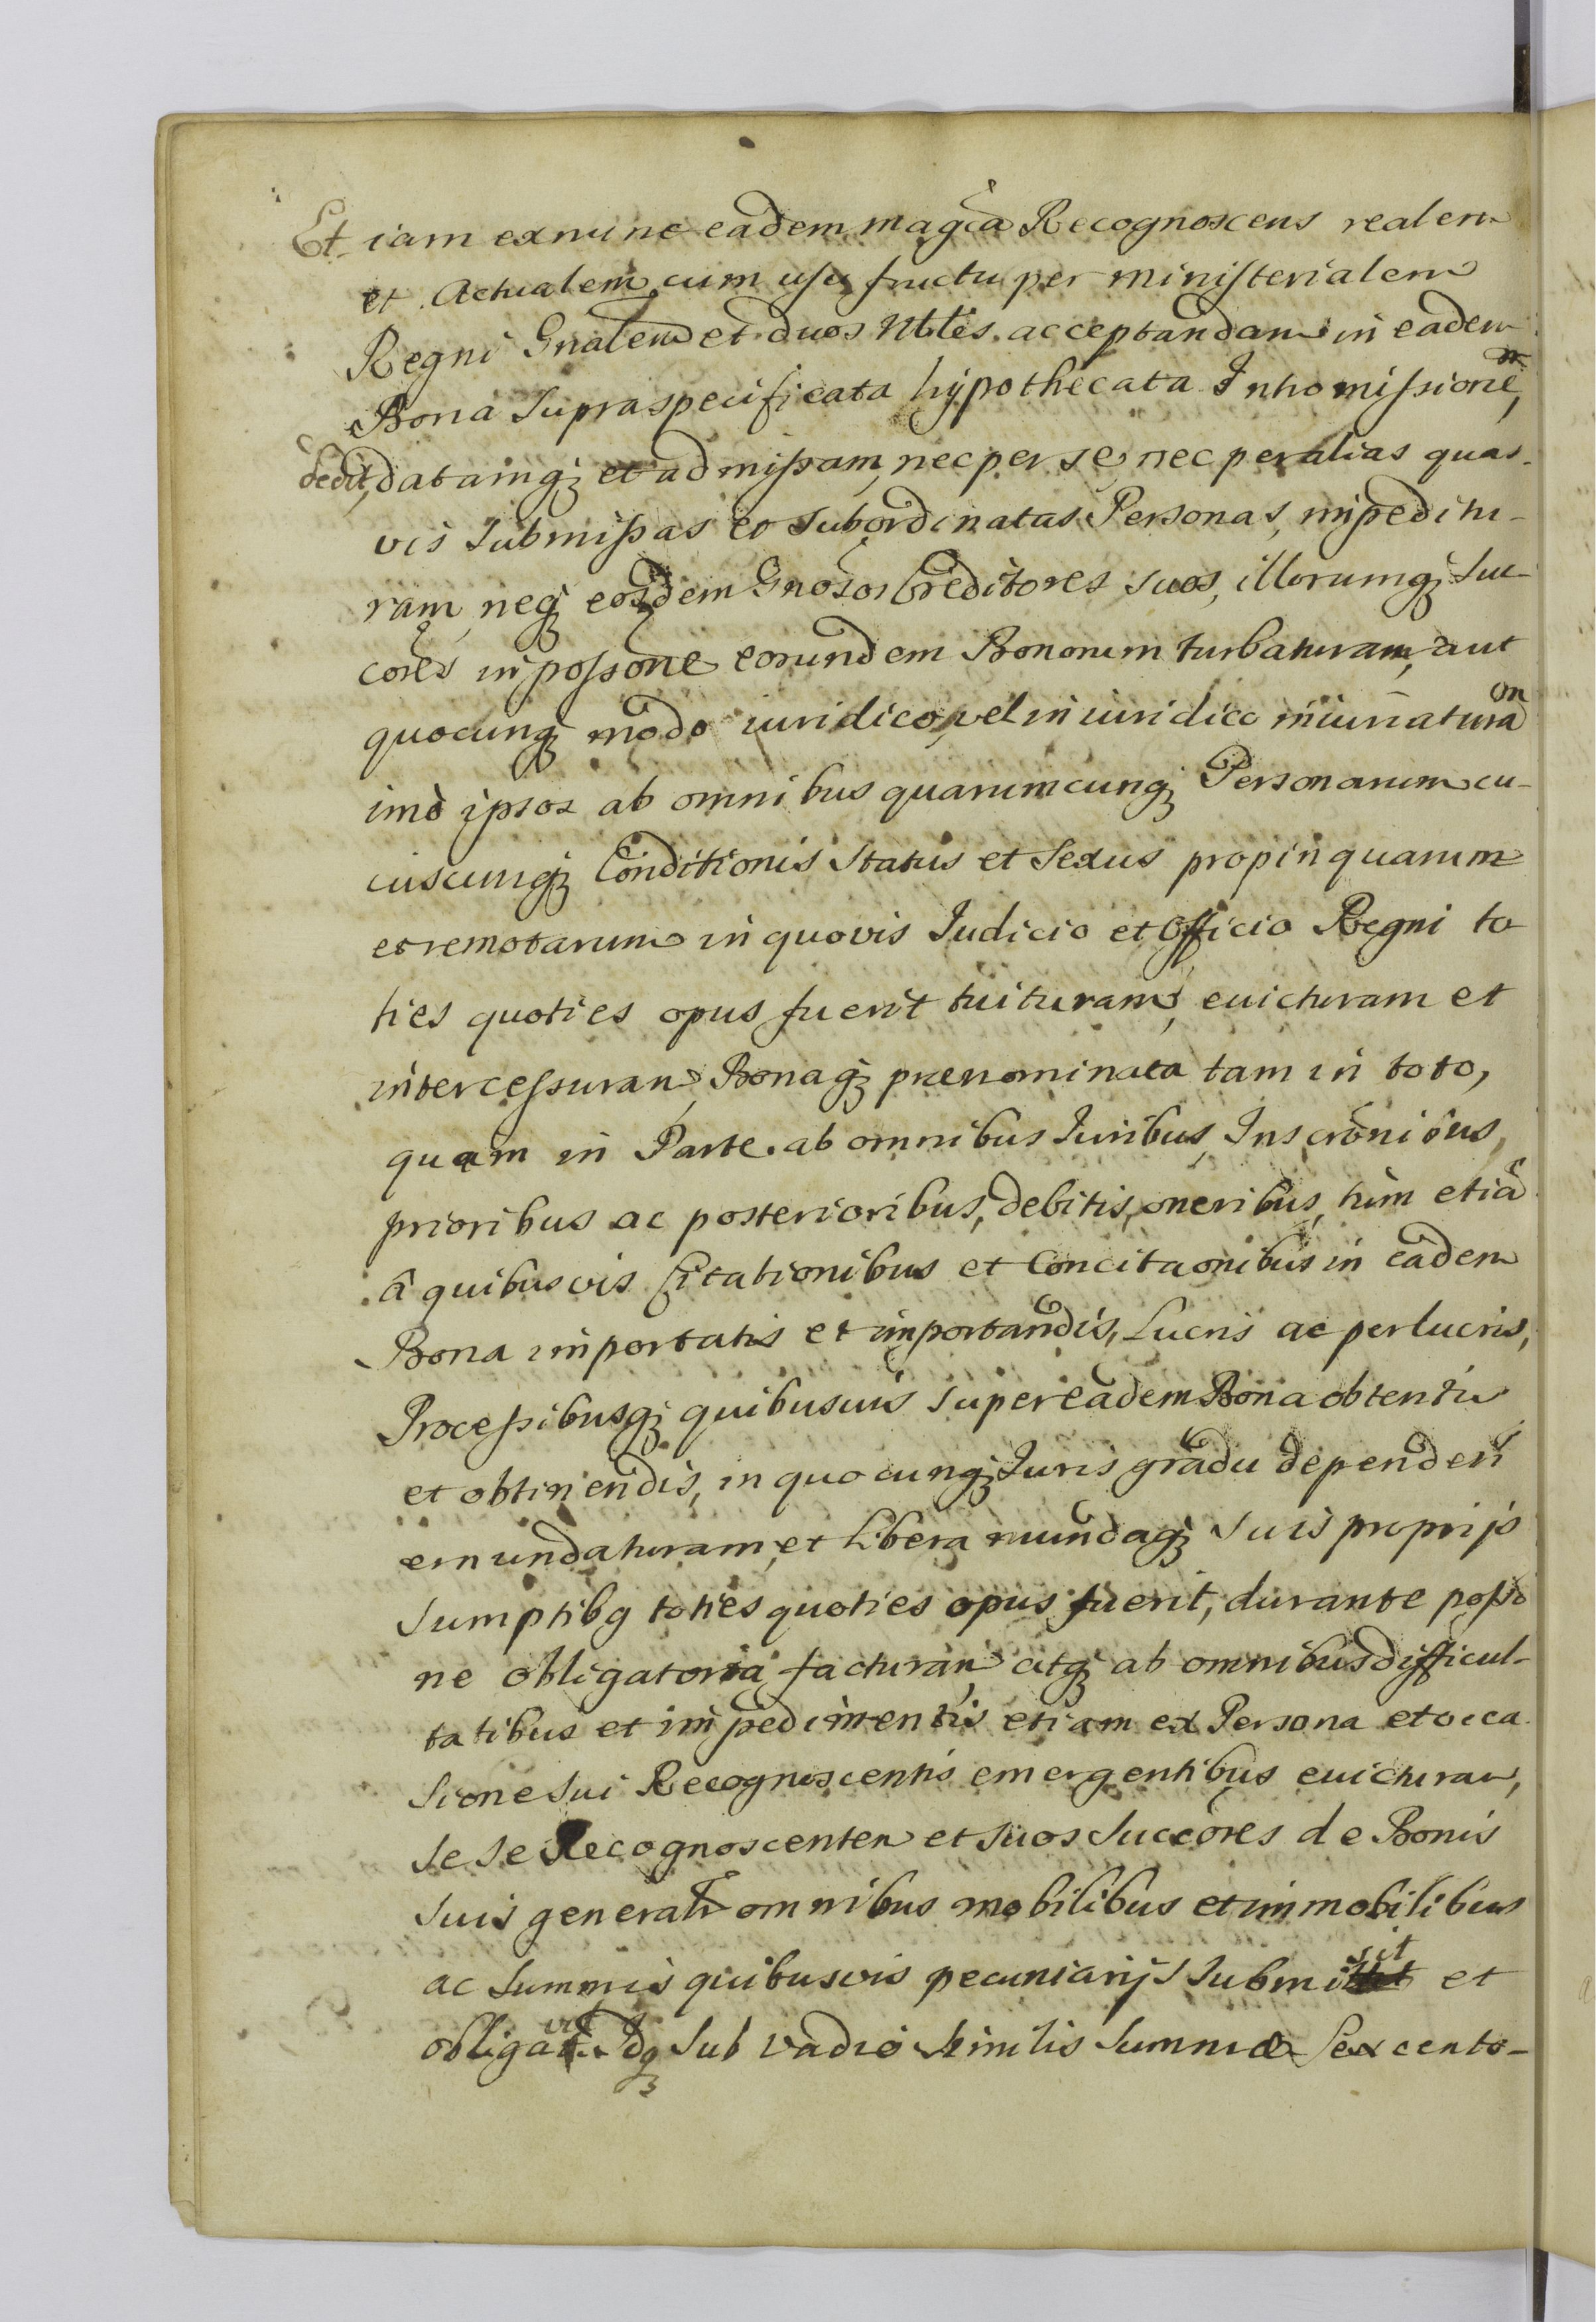 Et iam exnunc eadem magca Recognoscens realem
et Actualem cum usu fructu per ministerialem
Regni Gnalem et duos Nbles acceptandam in eadem
Bona supraspecificata hypothecata Intromissionem,
dedit, datamq; et admissam, nec per se, nec per alias quas-
vis submissas et subordinatas Personas, impeditu-
ram, neq; eosdem Gnosos Creditores suos, illorumq; suc-
cores in possone eorundem Bonorum turbaturam, aut
quocunq; modo iuridico, vel in iuridico iniuriaturam
imò ipsos ab omnibus quarumcunq; Personarum cu-
iuscunq; Conditionis Status et Sexus propinquarum
et remotarum in quovis Iudicio et Officio Regni to
ties quoties opus fuerit tuituram, euicturam et
intercessuram, Bonaq; prænominata tam in toto,
quam in Parte ab omnibus Iuribus, Inscronibus,
prioribus ac posterioribus, debitis, oneribus, tùm etiā
â quibusvis Citationibus et Concitaonibus in eadem
Bona importatis et importandis, Lucris ac perlucris,
Processibusq; quibusuis super eadem Bona obtentis
et obtinendis, in quocunq; Iuris gradu dependen
emundaturam, et libera mundaq; suis proprijs
sumptibq toties quoties opus fuerit, durante posso
ne obligatoria facturam, atq; ab omnibus difficul-
tatibus et impedimentis etiam ex Persona et occa
sione sui Recognoscentis emergentibus euicturam,
sese Recognoscentem et suos succores de Bonis
suis generalr omnibus mobilibus et immobilibus
ac summis quibusvis pecuniarijs submisit et
obligavit Idq; sub vadio similis summæ Sexcento-